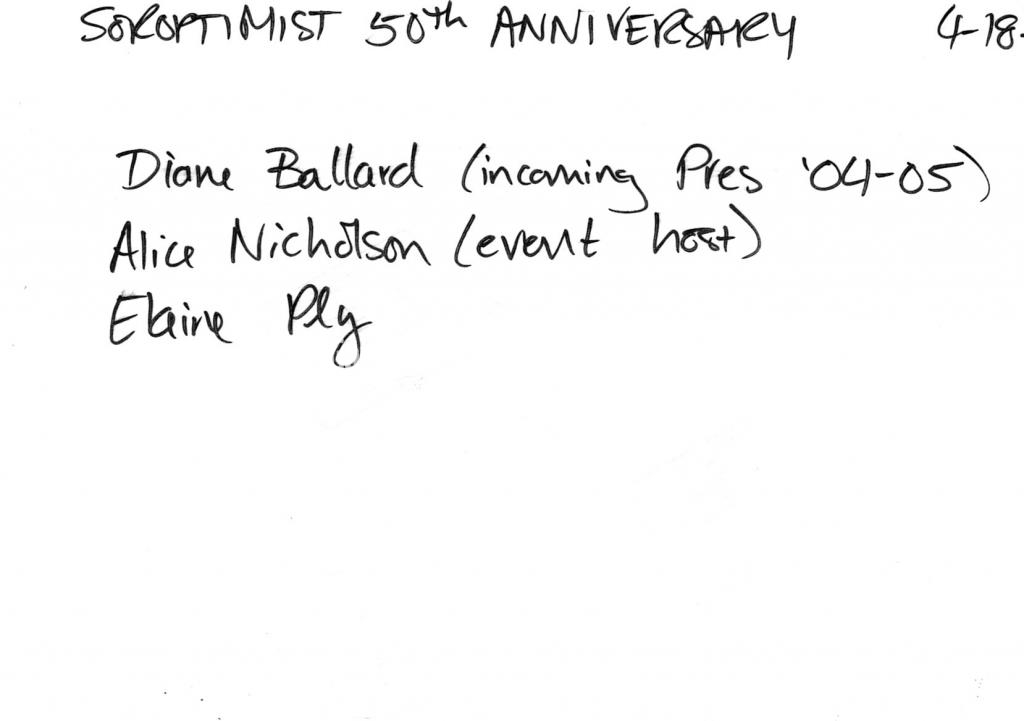 SOROPTIMIST 50th ANNIVERSARY 4-18-
Diane Ballard (incoming Pres '04-05)
Alice Nicholson (event host)
Elaine Ply